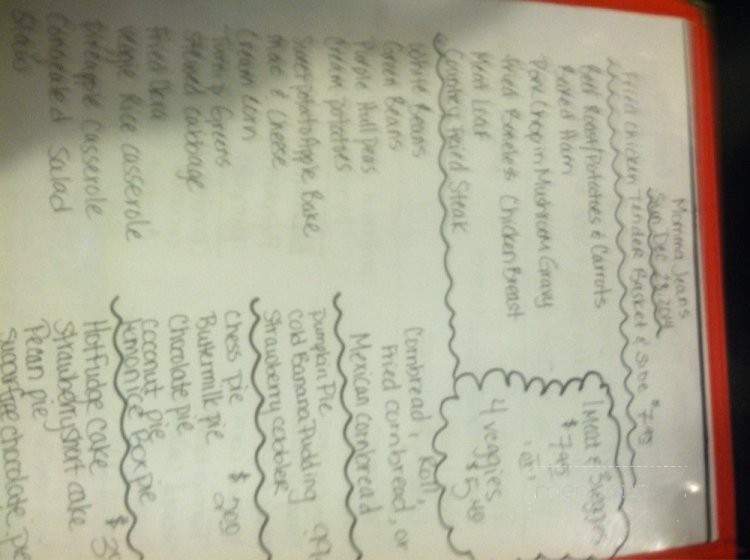 Momma Jeans
Sun Dec 28 2014
Fried Chicken Tender Basket & side $7.49
Pot Roast/Potatoes & Carrots
Baked Ham
Pork Chop in Mushroom Gravy
Fried Boneless Chicken Breast
Meat Loaf
Country Fried Steak
1 Meat & 3 veggies
$7.49
"or"
4 veggies
$5.49
White Beans
Green Beans
Purple Hull Peas
Cream potatoes
Sweet potato Apple Bake
Mac & Cheese
Cream Corn
Turnip Greens
Steamed Cabbage
Fried Okra
Veggie Rice Casserole
Pineapple Casserole
Congealed Salad
Slaw
Cornbread, Roll,
Fried cornbread, or
Mexican cornbread
Pumpkin Pie
Cold Banana Pudding 99
Strawberry cobbler
Chess Pie
Buttermilk pie $
Chocolate pie
Coconut pie
Lemon ice Box pie
Hot fudge cake
Strawberry short cake
Pecan pie
Sugar free chocolate pie